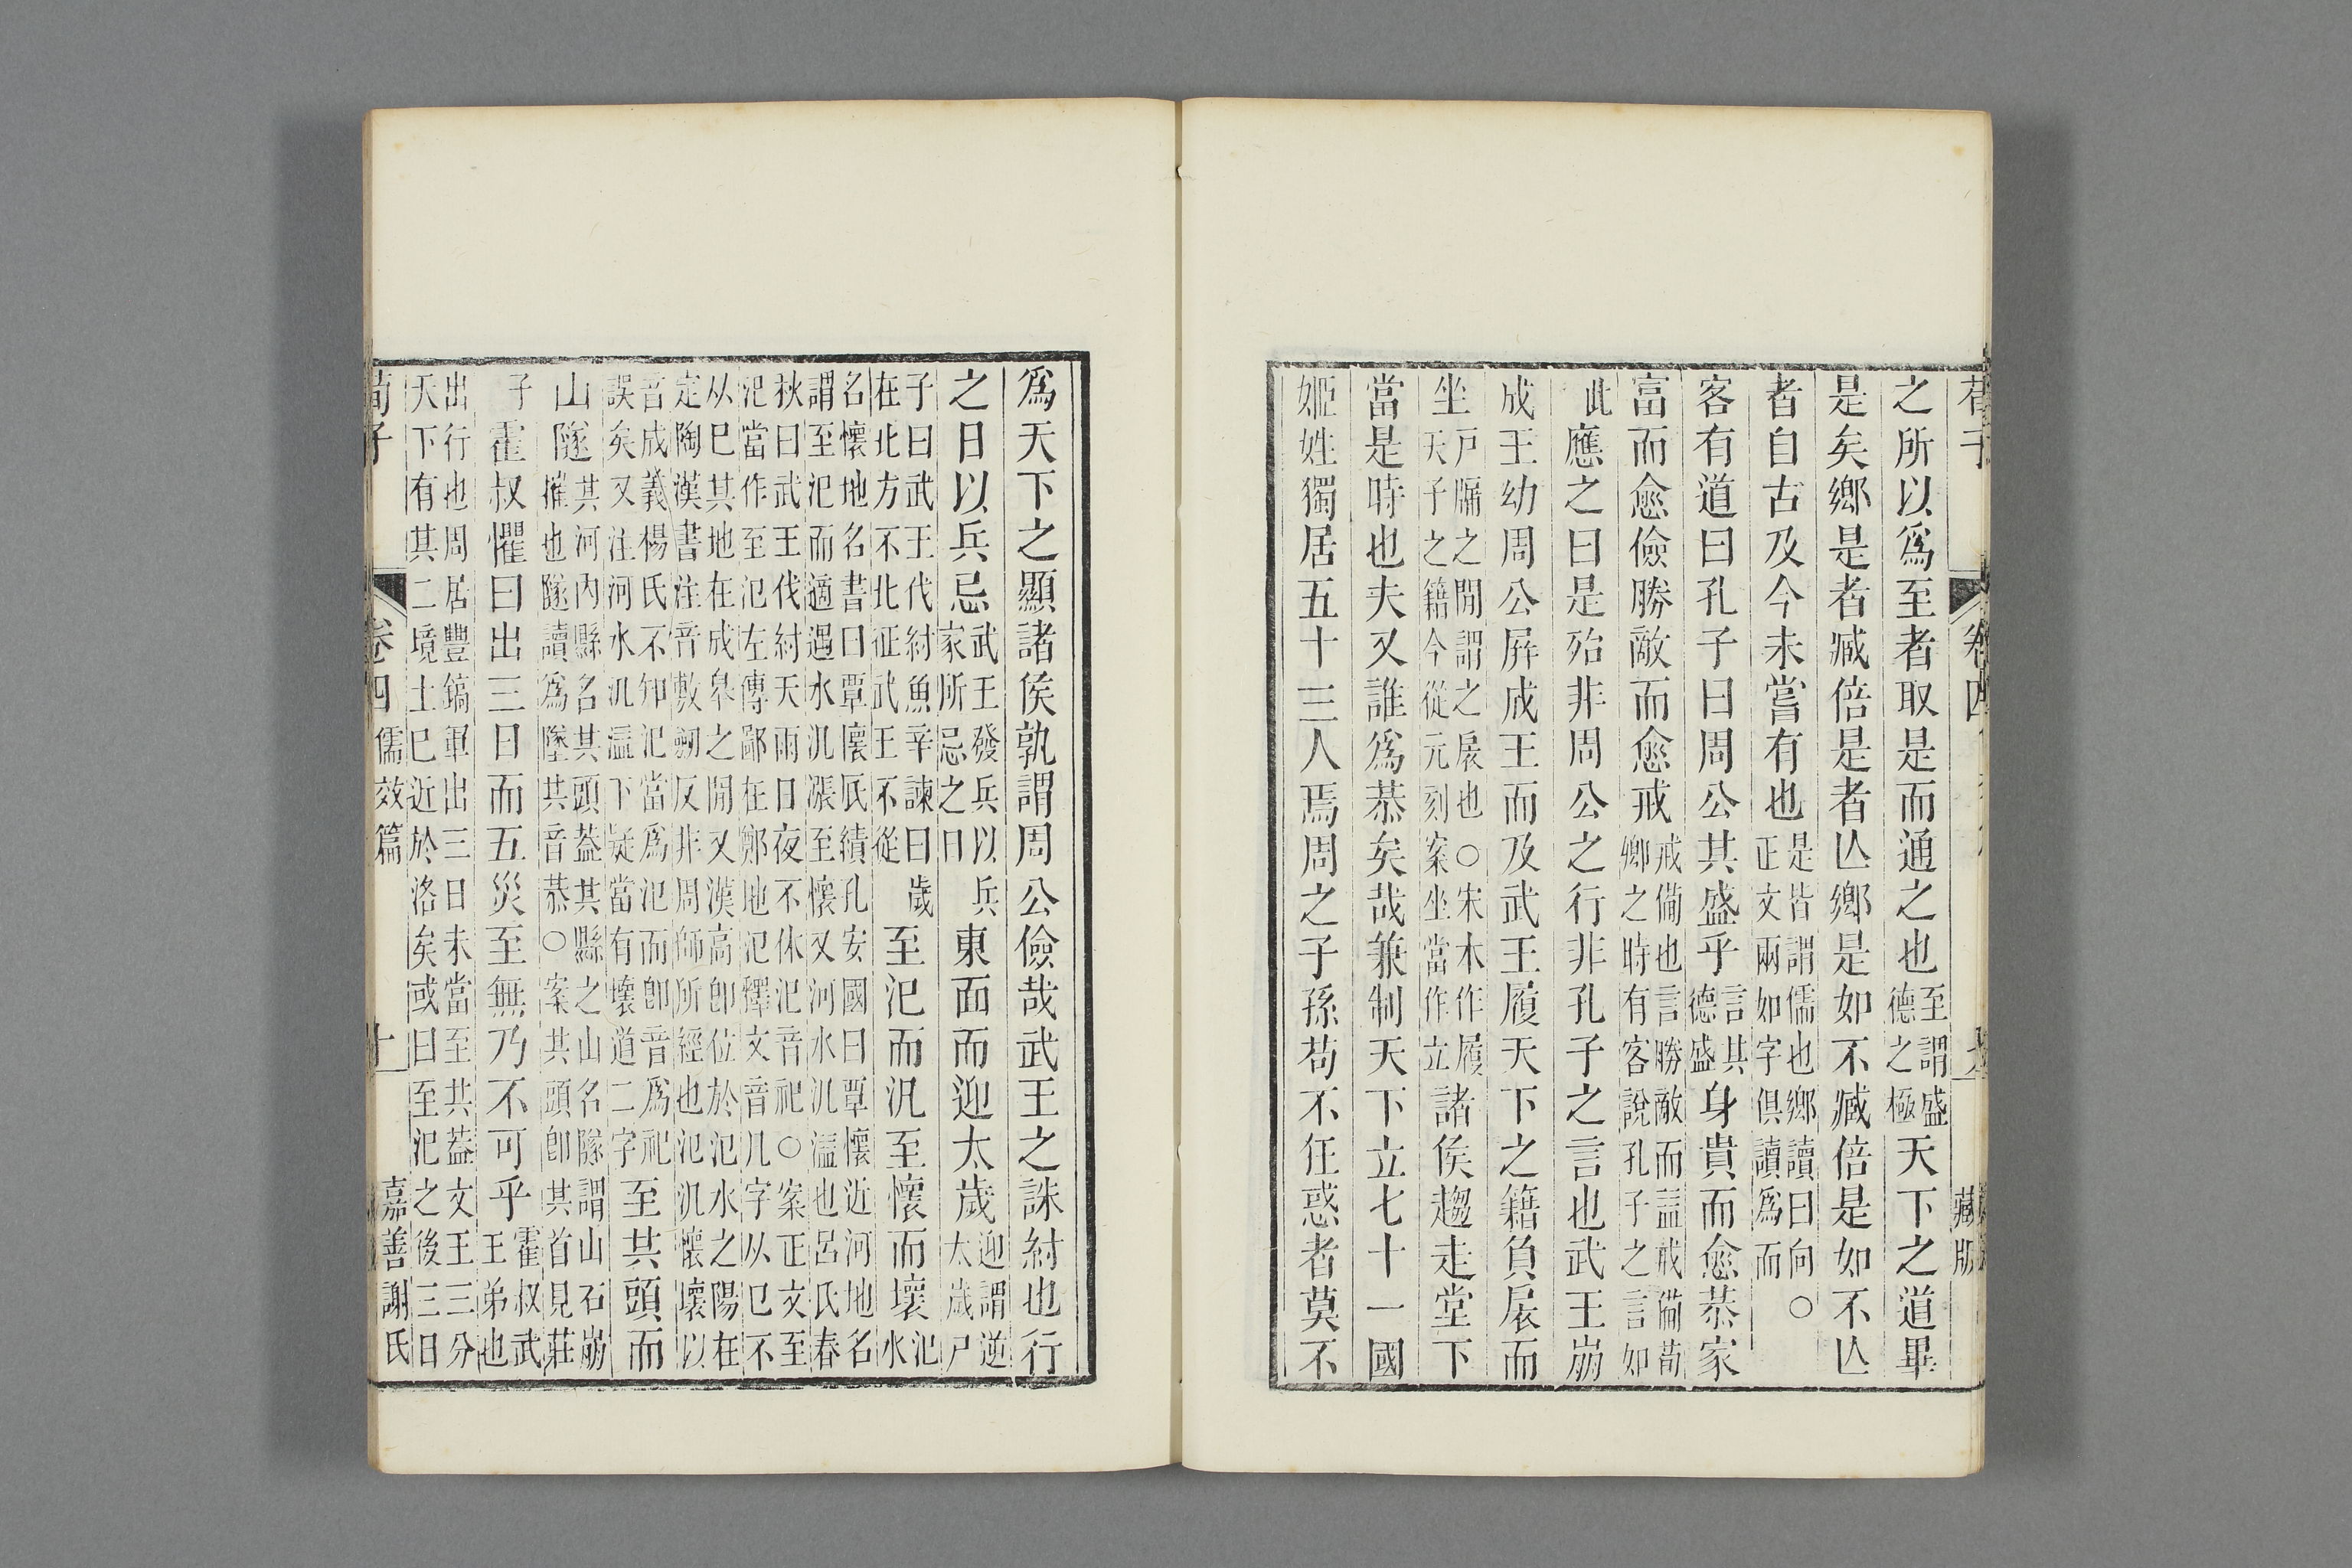 荀子 卷四 藏版
之所以爲至者取是而通之也至謂盛德之極天下之道畢
是矣鄉是者臧倍是者亾鄉是如不臧倍是如不亾
者自古及今未嘗有也是皆謂儒也鄉讀曰向○正文兩如字俱讀爲而
客有道曰孔子曰周公其盛乎言其德盛身貴而愈恭家
富而愈儉勝敵而愈戒戒備也言勝敵而益戒備荀卿之時有客說孔子之言如
此應之曰是殆非周公之行非孔子之言也武王崩
成王幼周公屏成王而及武王履天下之籍負扆而
坐戸牖之閒謂之扆也○宋本作履天子之籍今從元刻案坐當作立諸侯趨走堂下
當是時也夫又誰爲恭矣哉兼制天下立七十一國
姬姓獨居五十三人焉周之子孫苟不狂惑者莫不
爲天下之顯諸侯孰謂周公儉哉武王之誅紂也行
之日以兵忌武王發兵以兵家所忌之日東面而迎太歲迎謂逆太歲尸
子曰武王伐紂魚辛諫曰歲在北方不北征武王不從至汜而汎至懷而壞汜水
名懷地名書曰覃懷厎績孔安國曰覃懷近河地名謂至汜而適遇水汎漲至懷又河水汎溢也呂氏春
秋曰武王伐紂天雨日夜不休汜音祀○案正文至汜當作至氾左傳鄙在鄭地氾釋文音凡字从㔾不
从巳其地在成皋之閒又漢高卽位於氾水之陽在定陶漢書注音敷劒反非周師所經也氾汎懷壞以
音成義楊氏不知汜當爲氾而卽音爲祀誤矣又注河水汎溢下疑當有壞道二字至共頭而
山隧共河內縣名共頭葢共縣之山名隧謂山石崩摧也隧讀爲墜共音恭○案共頭卽共首見莊
子霍叔懼曰出三日而五災至無乃不可乎霍叔武王弟也
出行也周居豐鎬軍出三日未當至共葢文王三分天下有其二境土已近於洛矣或曰至汜之後三日
荀子 卷四 儒效篇 十 嘉善謝氏